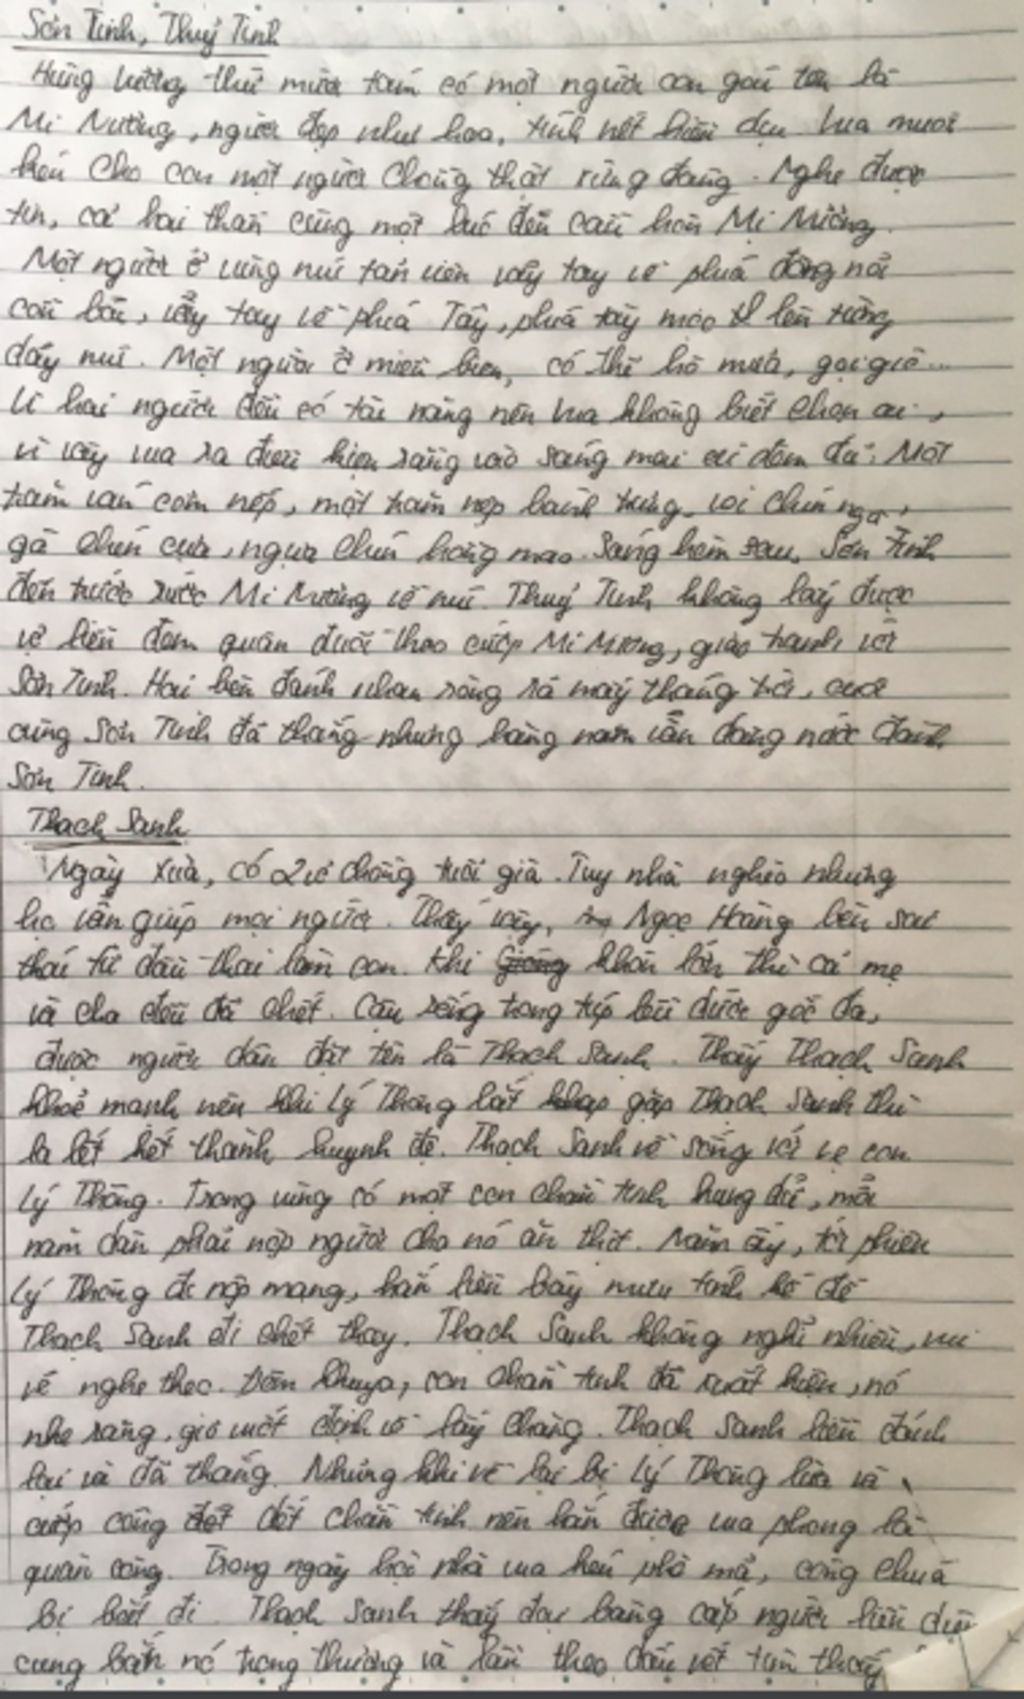 Sơn Tinh, Thuỷ Tinh
Hùng Vương thứ mười tám có một người con gái tên là
Mị Nương, người đẹp như hoa, tính nết hiền dịu. Vua muốn
kén cho con một người chồng thật xứng đáng. Nghe được
tin, cả hai thần cùng một lúc đến cầu hôn Mị Nương.
Một người ở vùng núi tản viên vẫy tay về phía đông nổi
cồn bãi, vẫy tay về phía Tây, phía tây mọc lên từng
dãy núi. Một người ở miền biển, có thể hô mưa, gọi gió...
Vì hai người đều có tài năng nên vua không biết chọn ai,
vì vậy vua ra điều kiện rằng vào sáng mai đi đem đủ: Một
trăm ván cơm nếp, một trăm nẹp bánh trưng, voi chín ngà,
gà chín cựa, ngựa chín hồng mao. Sáng hôm sau, Sơn Tinh
đến trước rước Mị Nương về núi. Thuỷ Tinh không lấy được
vợ liền đem quân đuổi theo cướp Mị Nương, giao tranh với
Sơn Tinh. Hai bên đánh nhau ròng rã mấy tháng trời, cuối
cùng Sơn Tinh đã thắng nhưng hàng năm vẫn dâng nước đánh
Sơn Tinh.
Thạch Sanh
Ngày xưa, có 2 vợ chồng tuổi già. Tuy nhà nghèo nhưng
họ vẫn giúp mọi người. Thấy vậy, Ngọc Hoàng bèn sai
thái tử đầu thai làm con. Khi khôn lớn thì cả mẹ
và cha đều đã chết. Cậu sống trong túp lều dưới gốc đa,
được người dân đặt tên là Thạch Sanh. Thấy Thạch Sanh
khoẻ mạnh nên khi Lý Thông gặp Thạch Sanh thì
la lết kết thành huynh đệ. Thạch Sanh về sống với mẹ con
Lý Thông. Trong vùng có một con chằn tinh hung dữ, mỗi
năm dân phải nộp người cho nó ăn thịt. Năm ấy, tới phiên
Lý Thông đi nộp mạng, hắn liền bày mưu tính kế để
Thạch Sanh đi chết thay. Thạch Sanh không nghĩ nhiều, vui
vẻ nghe theo. Đêm khuya, con chằn tinh đã xuất hiện, nó
nhe răng, giơ vuốt định vồ lấy chàng. Thạch Sanh liền đánh
lại và đã thắng. Nhưng khi về lại bị Lý Thông lừa và
cướp công chằn tinh nên hắn được vua phong là
quận công. Trong ngày hội nhà vua kén phò mã, công chúa
bị bắt đi. Thạch Sanh thấy đại bàng cắp người liền dùng
cung bắn nó trọng thương và lần theo dấu vết tìm thấy